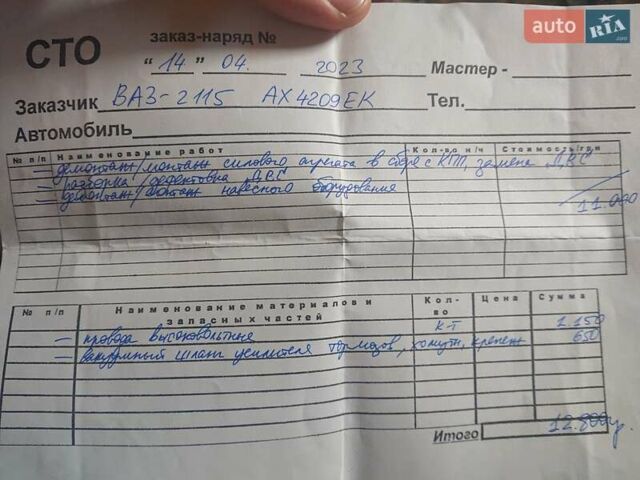 auto RIA.com
СТО
заказ-наряд №
“14” 04. 2023 Мастер -
Заказчик ВАЗ-2115 АХ4209ЕК Тел.
Автомобиль
№ п/п Наименование работ Кол-во н/ч Стоимость/грн
— демонтаж/монтаж силового агрегата в сборе с КПП, замена ДВС
— разборка/дефектовка ДВС
— демонтаж/монтаж навесного оборудования
11.000
№ п/п Наименование материалов и запасных частей Кол-во Цена Сумма
— провода высоковольтные к-т 1.150
— вакуумный шланг усилителя тормозов, хомуты, крепеж 650
Итого 12.800р.